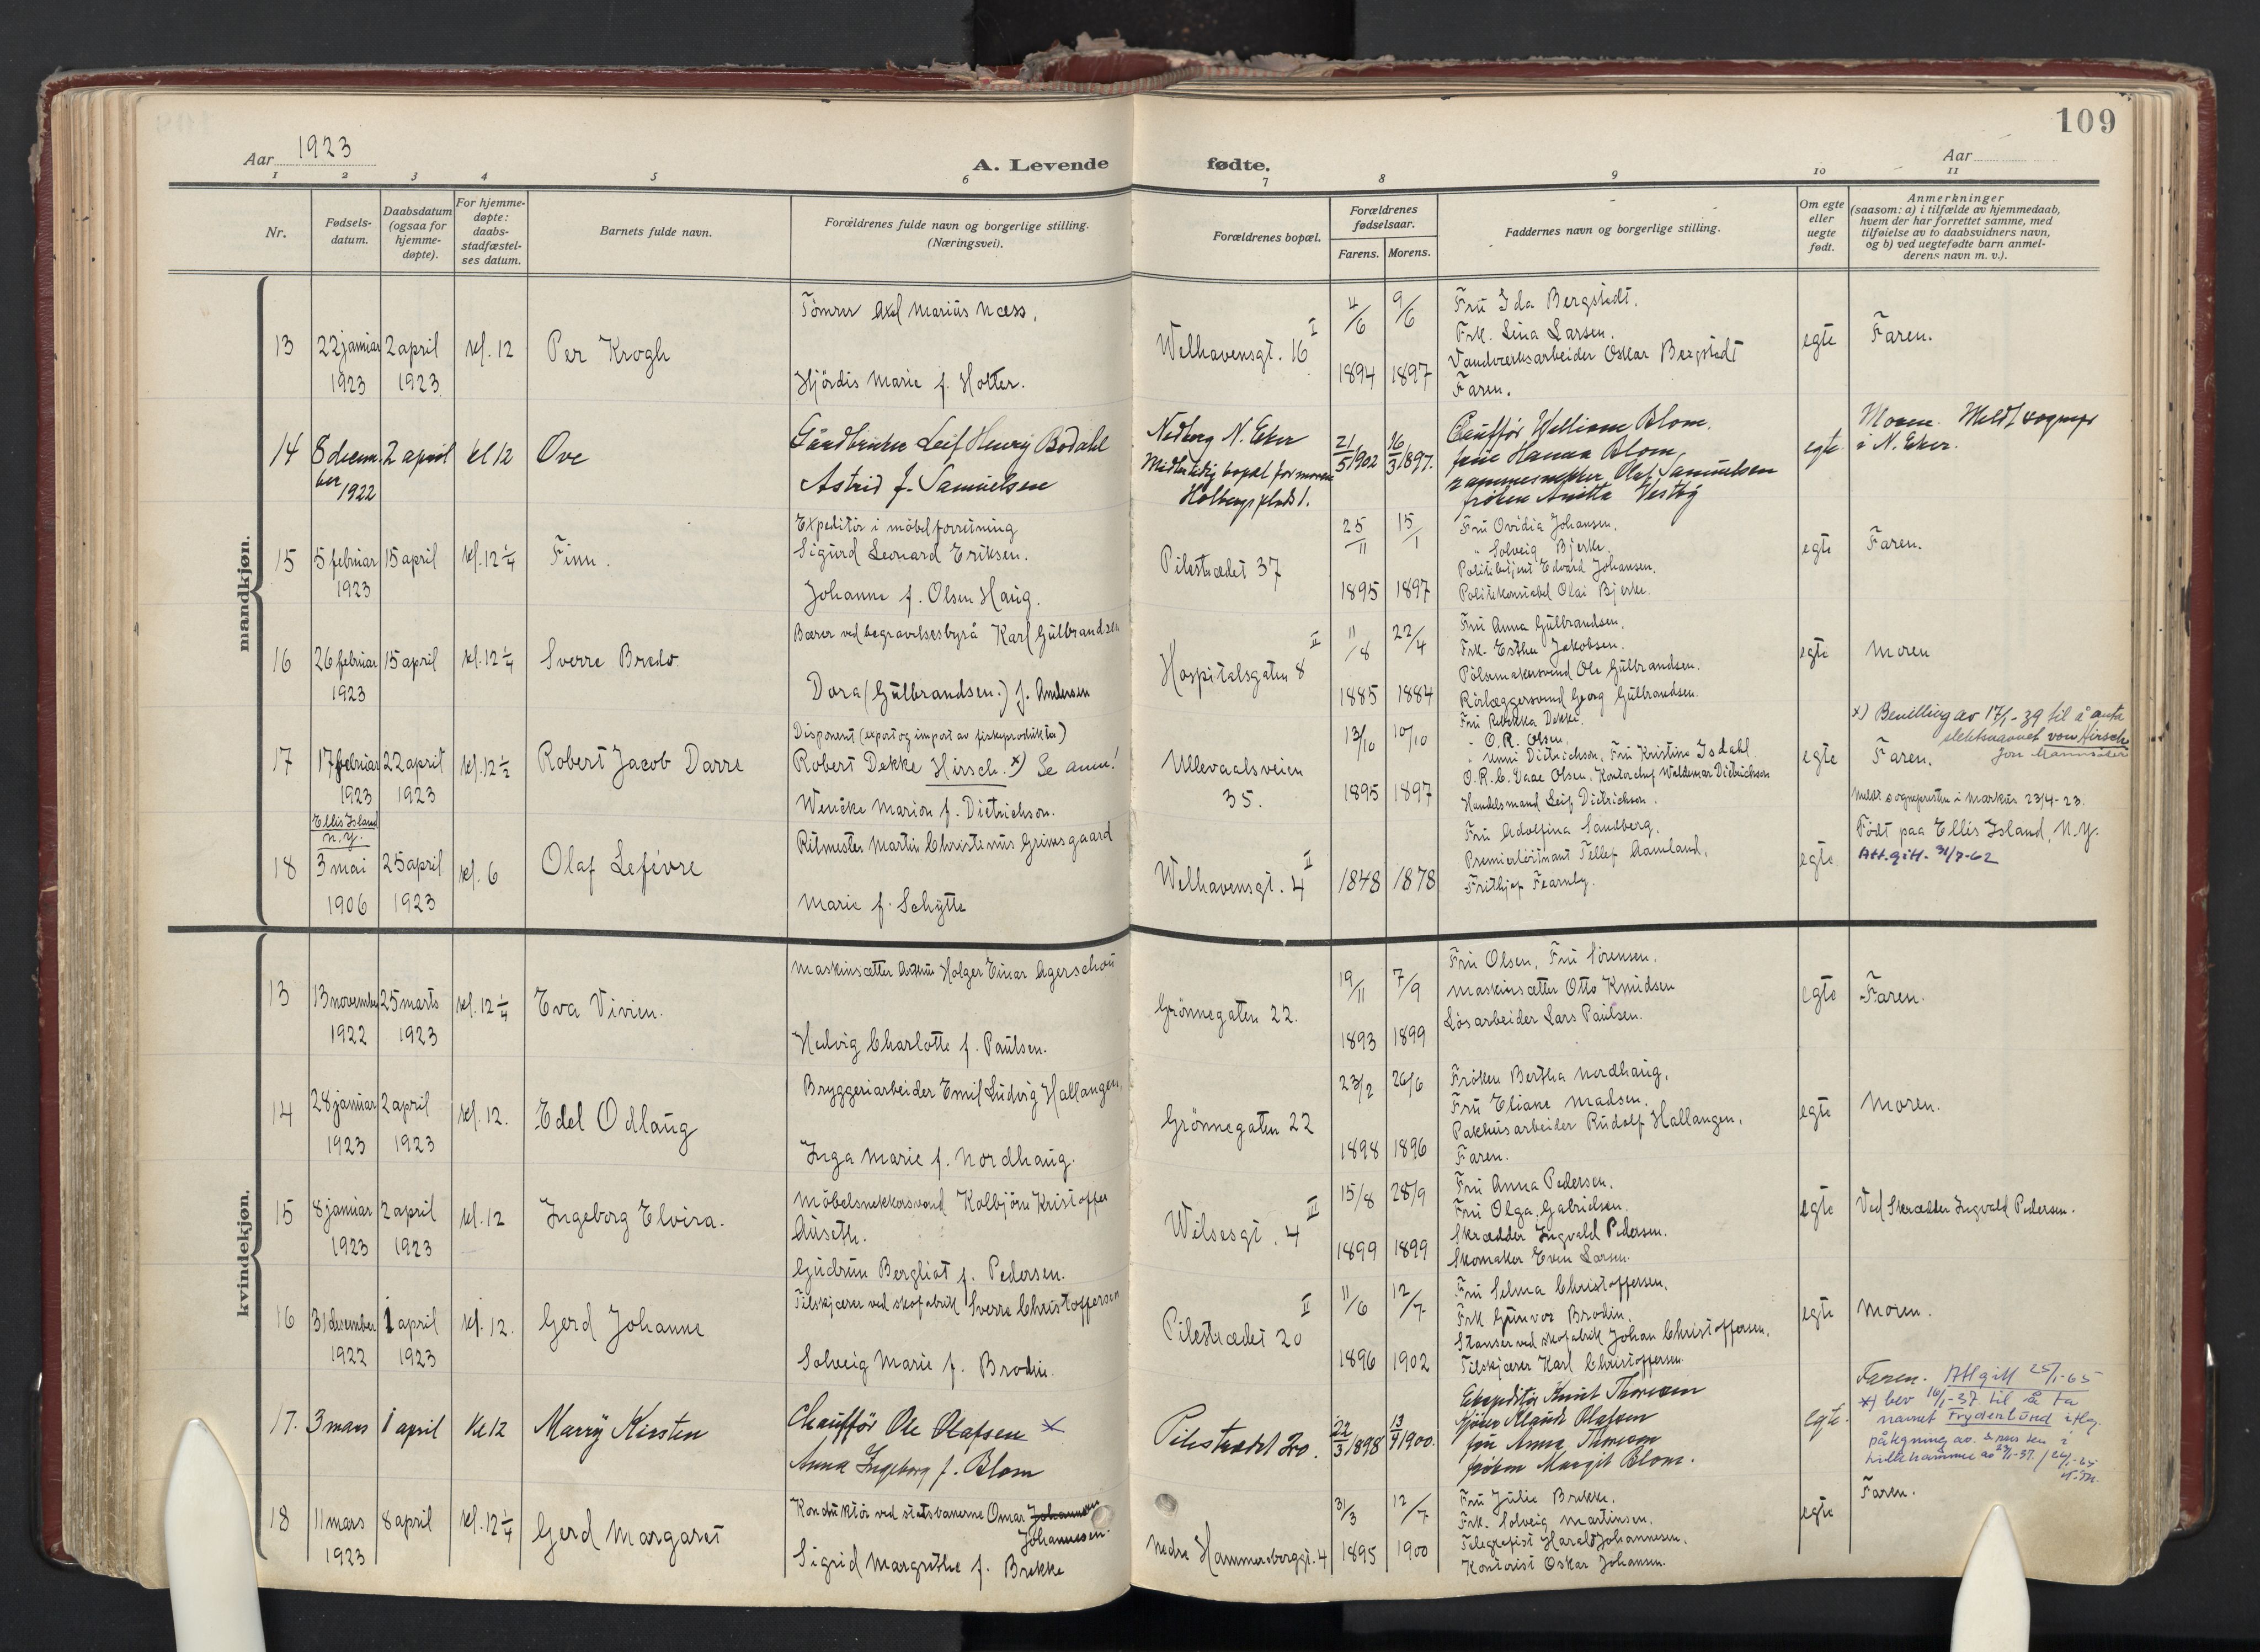 109
Aar 1923
A. Levende fødte.
Aar
1 2 3 4 5 6 7 8 9 10 11
Nr.
Fødsels-
datum.
Daabsdatum
(ogsaa for
hjemme-
døpte).
For hjemme-
døpte:
daabs-
stadfæstel-
ses datum.
Barnets fulde navn.
Forældrenes fulde navn og borgerlige stilling.
(Næringsvei).
Forældrenes bopæl.
Forældrenes
fødselsaar.
Farens. Morens.
Faddernes navn og borgerlige stilling.
Om egte
eller
uegte
født.
Anmerkninger
(saasom: a) i tilfælde av hjemmedaab,
hvem der har forrettet samme, med
tilføielse av to daabsvidners navn,
og b) ved uegtefødte barn anmel-
derens navn m. v.).
mandkjøn.
13
22 januar
1923
2 april
1923
kl. 12
Per Krogh
Tømrer Axel Marius Næss.
Hjördis Marie f. Holter.
Welhavensgt. 16 I
4/6
1894
9/6
1897
Fru Ida Bergstedt.
Frk. Lina Larsen.
Vandværksarbeider Oskar Bergstedt
Faren.
egte
Faren.
14
8 decem-
ber
1922
2 april
kl 12
Ove
Gårdbruker Leif Henry Bodahl
Astrid f. Samuelsen
Nedberg N. Eker
Midlertidig bopæl for moren
Holbergs plads 1.
21/5 1902
16/3 1897.
Chauffør William Blom.
frue Hanna Blom,
rammesnekker Olaf Samuelsen
frøken Anitta Vestby
egte
Moren. Meldt sognepr
i N. Eker.
15
5 februar
1923
15 april
kl. 12 1/4
Finn.
Expeditör i möbelforretning
Sigurd Leonard Eriksen.
Johanne f. Olsen Haug.
Pilestrædet 37
25/11
1895
15/1
1897
Fru Ovidia Johansen.
" Solveig Bjerke.
Politibetjent Edvard Johansen.
Politikonstabel Olai Bjerke.
egte
Faren.
16
26 februar
1923
15 april
kl. 12 1/4
Sverre Bredo
Bærer ved begravelsesbyrå Karl Gulbrandsen
Dora (Gulbrandsen.) f. Andersen
Hospitalsgaten 8 II
11/8
1885
22/4
1884
Fru Anna Gulbrandsen.
Frk. Esther Jakobsen.
Pölsemakersvend Ole Gulbrandsen.
Rörlæggersvend Georg Gulbrandsen.
egte
Moren
17
17 februar
1923
22 april
1923
kl. 12 1/2
Robert Jacob Darre
Disponent (export og import av fiskeprodukter)
Robert Dekke Hirsch. x) Se anm!
Wencke Marion f. Dietrichson.
Ullevaalsveien
35.
13/10
1895
10/10
1897
Fru Rebekka Dekke.
" O.R. Olsen.
" Unni Dietrichson, Fru Kristine Isdahl
O.R.C. Vaae Olsen, Kontorchef Waldemar Dietrichson
Handelsmand Leif Dietrichson.
egte
x) Bevilling av 17/1-39 til å anta
slektsnavnet von Hirsch
Faren.
Meldt sognepresten i Markus 23/4-23.
18
Ellis Island
N.Y.
3 mai
1906
25 april
1923
kl. 6
Olaf Lefévre
Ritmester Martin Christenius Grimsgaard
Marie f. Schytte
Welhavensgt. 4 II
1848
1878
Fru Adolfina Sandberg.
Premierløitnant Tellef Aamland.
Frithjof Fearnly.
egte
Födt paa Ellis Island, N.Y.
Att.gitt. 31/7-62
kvindekjøn.
13
13 november
1922
25 marts
1923
kl. 12 1/4
Eva Vivien.
Maskinsætter Holger Einar Agerschou
Hedvig Charlotte f. Paulsen.
Grönnegaten 22.
19/11
1893
7/9
1899
Fru Olsen, Fru Sörensen.
Maskinsætter Otto Knudsen
Lösarbeider Lars Paulsen.
egte
Faren.
14
28 januar
1923
2 april
1923
kl. 12.
Edel Odlaug
Bryggeriarbeider Emil Ludvig Hallangen.
Inga Marie f. Nordhaug.
Grönnegaten 22
23/2
1898
26/6
1896
Fröken Bertha Nordhaug.
Fru Eliane Madsen.
Pakhusarbeider Rudolf Hallangen.
Faren.
egte
Moren.
15
8 januar
1923
2 april
1923
kl. 12
Ingeborg Elvira.
Möbelsnekkersvend Kolbjörn Kristoffer
Auseth.
Gudrun Bergliot f. Pedersen.
Wilsesgt. 4 III
15/8
1899
28/9
1899
Fru Anna Pedersen.
Fru Olga Gabrielsen.
Skrædder Ingvald Pedersen.
Skomaker Even Larsen.
egte
Ved Skrædder Ingvald Pedersen.
16
31 desember
1922
1 april
1923
kl. 12.
Gerd Johanne
Tilskjærer ved skofabrik Sverre Christoffersen
Solveig Marie f. Brodin.
Pilestrædet 20 II
11/6
1896
12/7
1902
Fru Selma Christoffersen.
Frk Gunvor Brodin.
Stanser ved skofabrik Johan Christoffersen.
Tilskjærer Karl Christoffersen.
egte
Moren.
17.
3 mars
1 april
Kl 12
Marry Kirsten
Chauffør Ole Olafsen x
Anna Ingeborg f. Blom
Pilestrædet
22/3 1898
13/4 1900.
Ekspeditør Knut Thoresen
fru Anna Thoresen
frøken Margit Blom.
egte.
Faren. Att gitt 25/1-65
x) bev 16/1-37. til å ta
navnet Frydenlund iflg.
påtegning av
18
11 mars
1923
8 april
kl. 12 1/4
Gerd Margaret
Konduktör ved statsbanerne Omar Johannesen
Johannesen.
Sigrid Margrethe f. Brekke
Nedre Hammersborggt. 4
31/3
1895
12/7
1900
Fru Julie Brekke.
Frk. Solveig Martinsen.
Telegrafist Harald Johannesen.
Kontorist Oskar Johansen.
egte
Faren.